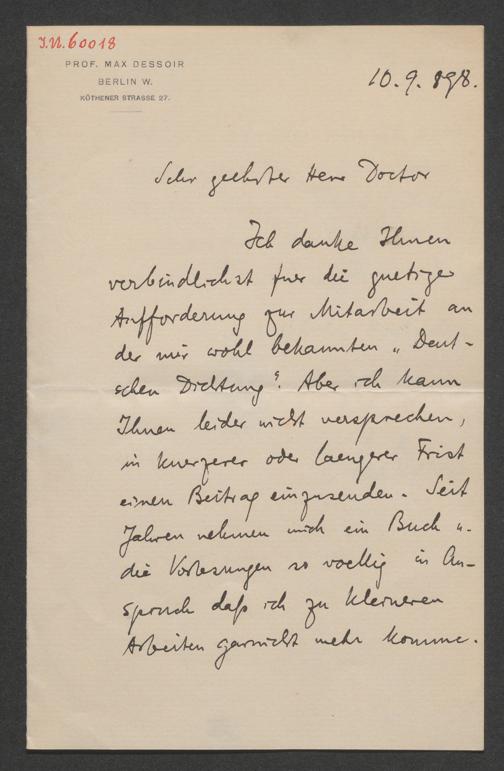 J.N. 60018
PROF. MAX DESSOIR
BERLIN W.
KÖTHENER STRASSE 27.
10. 9. 898.
Sehr geehrter Herr Doctor
Ich danke Ihnen
verbindlichst fuer die guetige
Aufforderung zur Mitarbeit an
der mir wohl bekannten „Deut-
schen Dichtung“. Aber ich kann
Ihnen leider nicht versprechen,
in kuerzerer oder laengerer Frist
einen Beitrag einzusenden. Seit
Jahren nehmen mich ein Buch u.
die Vorlesungen so voellig in An-
spruch daß ich zu kleineren
Arbeiten garnicht mehr komme.